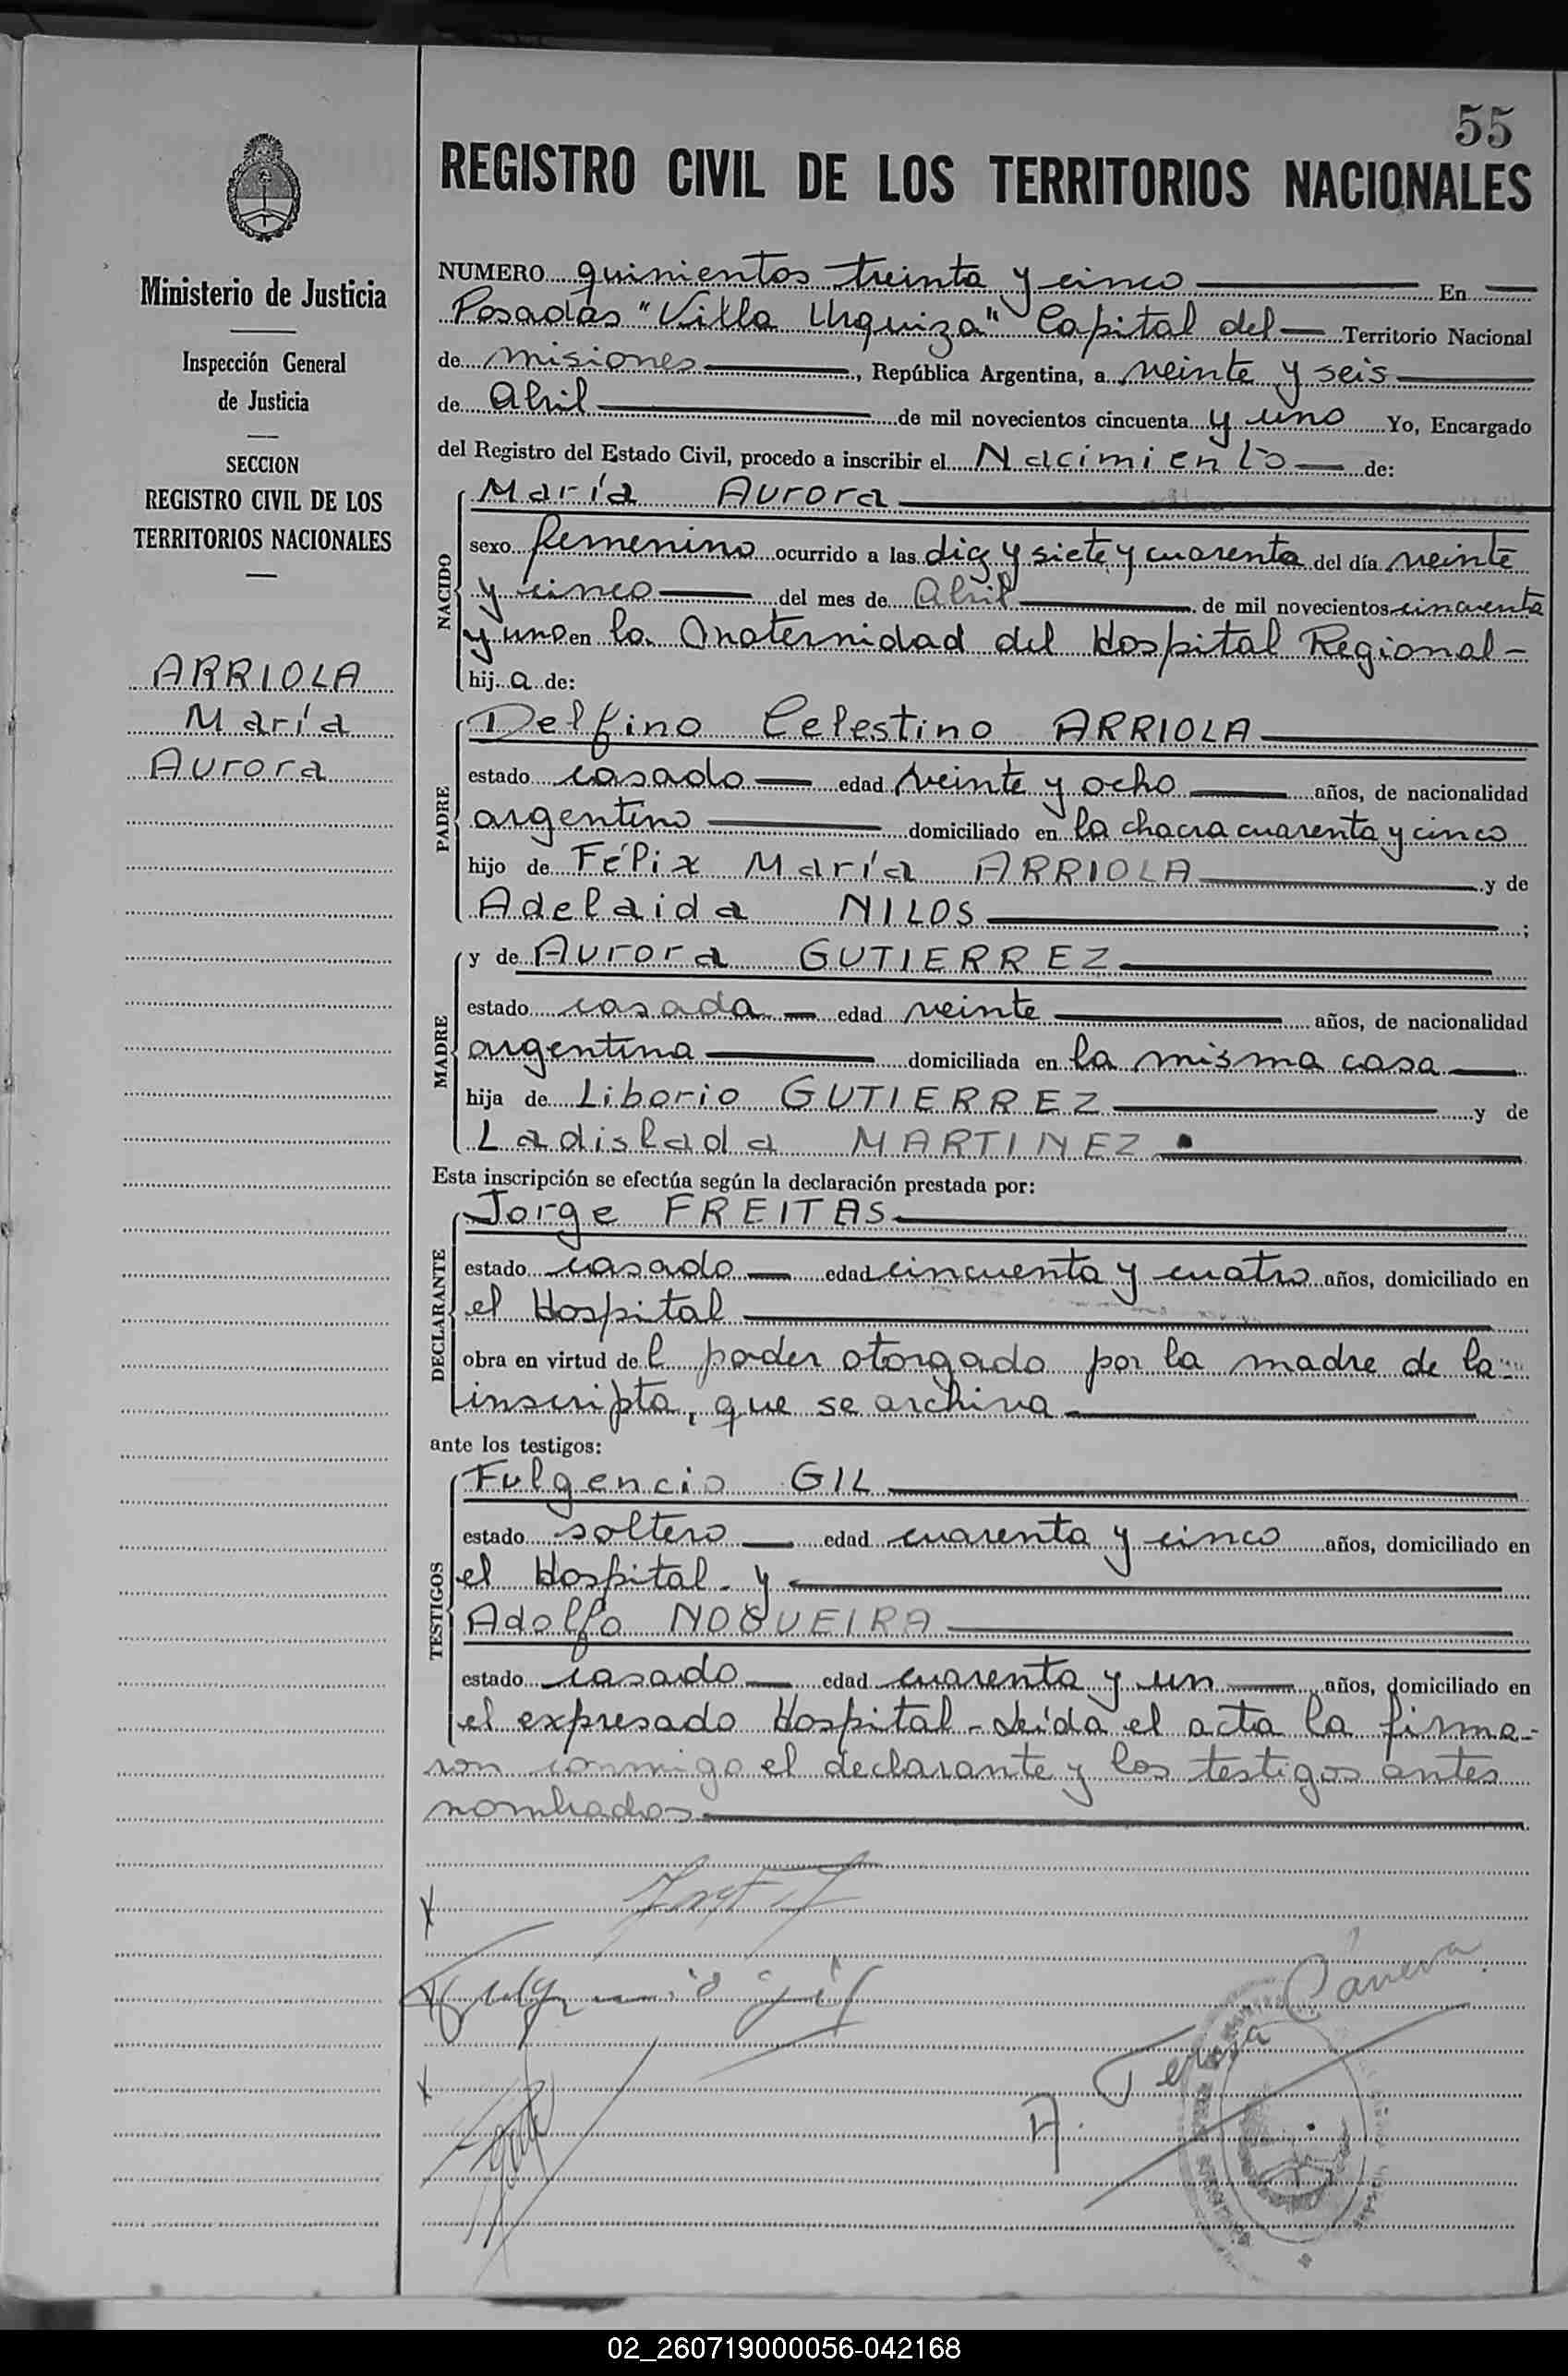 55
REGISTRO CIVIL DE LOS TERRITORIOS NACIONALES
Ministerio de Justicia
Inspección General
de Justicia
SECCION
REGISTRO CIVIL DE LOS
TERRITORIOS NACIONALES
ARRIOLA
María
Aurora
NUMERO quinientos treinta y cinco En
Posadas "Villa Urquiza" Capital del Territorio Nacional
de Misiones, República Argentina, a veinte y seis
de Abril de mil novecientos cincuenta y uno Yo, Encargado
del Registro del Estado Civil, procedo a inscribir el Nacimiento de:
NACIDO
María Aurora
sexo femenino ocurrido a las diez y siete y cuarenta del día veinte
y cinco del mes de Abril de mil novecientos cincuenta
y uno en la Maternidad del Hospital Regional-
hija de:
PADRE
Delfino Celestino ARRIOLA
estado casado edad veinte y ocho años, de nacionalidad
argentino domiciliado en la chacra cuarenta y cinco
hijo de Félix María ARRIOLA y de
Adelaida NILOS ;
MADRE
y de Aurora GUTIERREZ
estado casada edad veinte años, de nacionalidad
argentina domiciliada en la misma casa
hija de Liborio GUTIERREZ y de
Ladislada MARTINEZ.
Esta inscripción se efectúa según la declaración prestada por:
DECLARANTE
Jorge FREITAS
estado casado edad cincuenta y cuatro años, domiciliado en
el Hospital
obra en virtud del poder otorgado por la madre de la
inscripta, que se archiva
ante los testigos:
TESTIGOS
Fulgencio GIL
estado soltero edad cuarenta y cinco años, domiciliado en
el Hospital - y
Adolfo NOGUEIRA
estado casado edad cuarenta y un años, domiciliado en
el expresado Hospital - Leída el acta la firma-
ron conmigo el declarante y los testigos antes
nombrados
Fulgencio gil
A. Teresa Cáneva
02_260719000056-042168